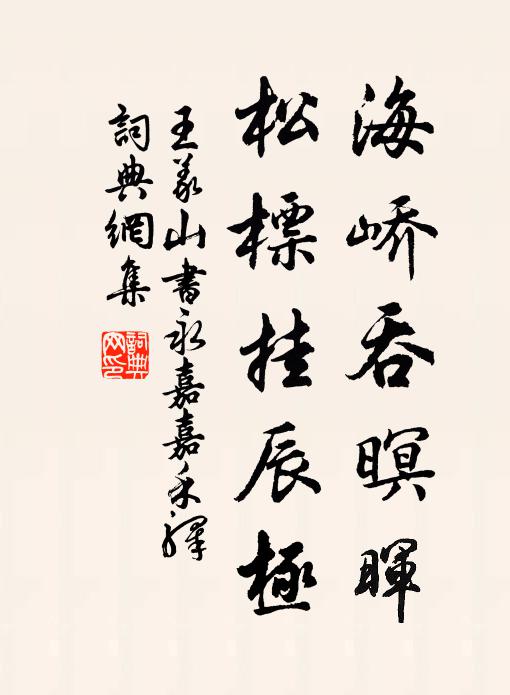 海峤吞暝暉
松標挂辰極
王义山書永嘉嘉禾驛
詞典網集
詞典网印